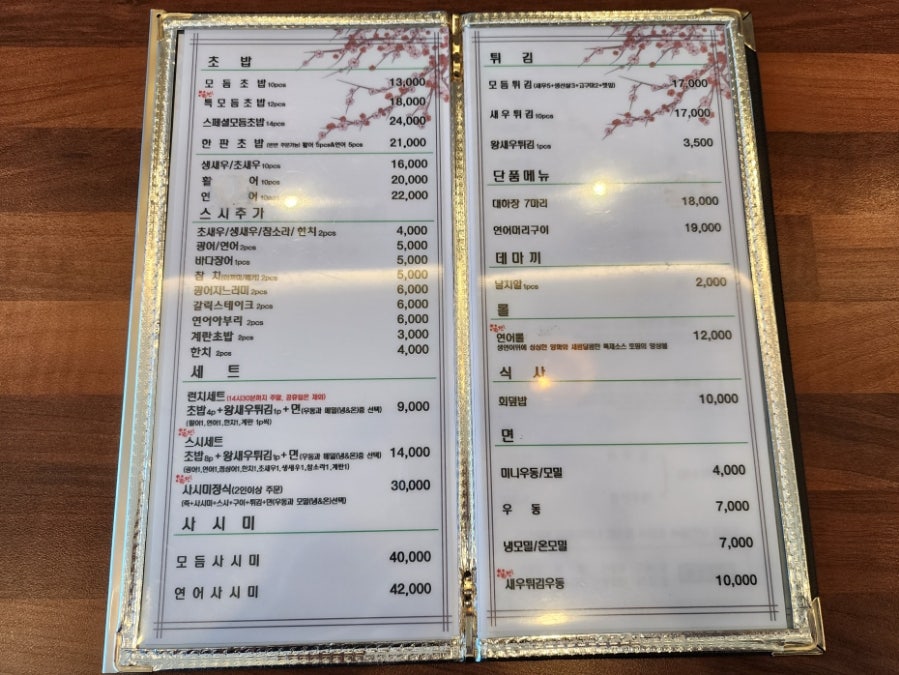 초 밥
모 듬 초 밥 10pcs 13,000
특 모 듬 초 밥 12pcs 18,000
스페셜모듬초밥 14pcs 24,000
한 판 초 밥 활어 5pcs&연어 5pcs 21,000
생새우/초새우 10pcs 16,000
활 어 10pcs 20,000
연 어 10pcs 22,000
스 시 추 가
초새우/생새우/참소라/ 한치 2pcs 4,000
광어/연어 2pcs 5,000
바다장어 1pcs 5,000
참 치 2pcs 5,000
광어지느러미 2pcs 6,000
갈릭스테이크 2pcs 6,000
연어아부리 2pcs 6,000
계란초밥 2pcs 3,000
한치 2pcs 4,000
세 트
런치세트 (14시30분까지 주말, 공휴일은 제외)
초밥4p+왕새우튀김1p+면(우동과 메밀(냉&온)중 선택) 9,000
(활어1,연어1,한치1,계란 1p씩)
스시세트
초밥8p+왕새우튀김1p+면(우동과 메밀(냉&온)중 선택) 14,000
(광어1,연어1,점성어1,한치1,초새우1,생새우1,참소라1,계란1)
사시미정식(2인이상 주문) 30,000
(죽+사시미+스시+구이+튀김+면(우동과 모밀(냉&온)선택)
사 시 미
모 듬 사 시 미 40,000
연 어 사 시 미 42,000
튀 김
모 듬 튀 김 (새우5+생선살3+고구마2+깻잎) 17,000
새 우 튀 김 10pcs 17,000
왕새우튀김 1pcs 3,500
단 품 메 뉴
대하장 7마리 18,000
연어머리구이 19,000
데 마 끼
날치알 1pcs 2,000
롤
연어롤 12,000
생연어위에 싱싱한 양파와 새콤달콤한 특제소스 조화의 앙상블
식 사
회덮밥 10,000
면
미니우동/모밀 4,000
우 동 7,000
냉모밀/온모밀 7,000
새우튀김우동 10,000